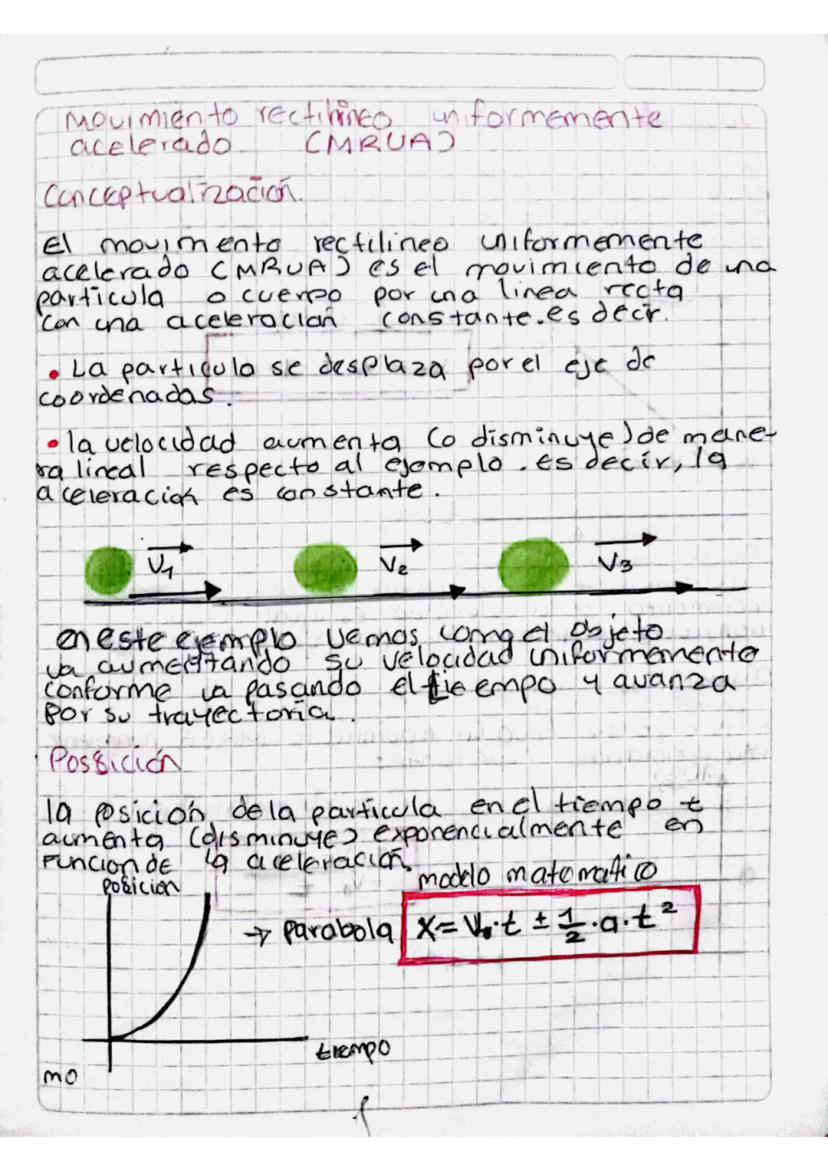 Movimiento rectilineo uniformemente
acelerado (MRUA)
Conceptualización.
El movimento rectilineo uniformemente
acelerado (MRUA) es el movimiento de una
particula o cuerpo por una linea recta
con una aceleración constante. es decir.
• La particula se desplaza por el eje de
coordenadas.
• la velocidad aumenta (o disminuye) de mane-
ra lineal respecto al ejemplo. es decir, la
aceleración es constante.
V₁ V₂ V₃
en este ejemplo vemos como el objeto
va aumentando su velocidad uniformemente
conforme va pasando el tie empo y avanza
por su trayectoria.
Posición
la posición de la particula en el tiempo t
aumenta (disminuye) exponencialmente en
Función de la aceleración.
posicion
modelo matematico
→ parabola X = V₀·t ± 1/2·a·t²
tiempo
mo